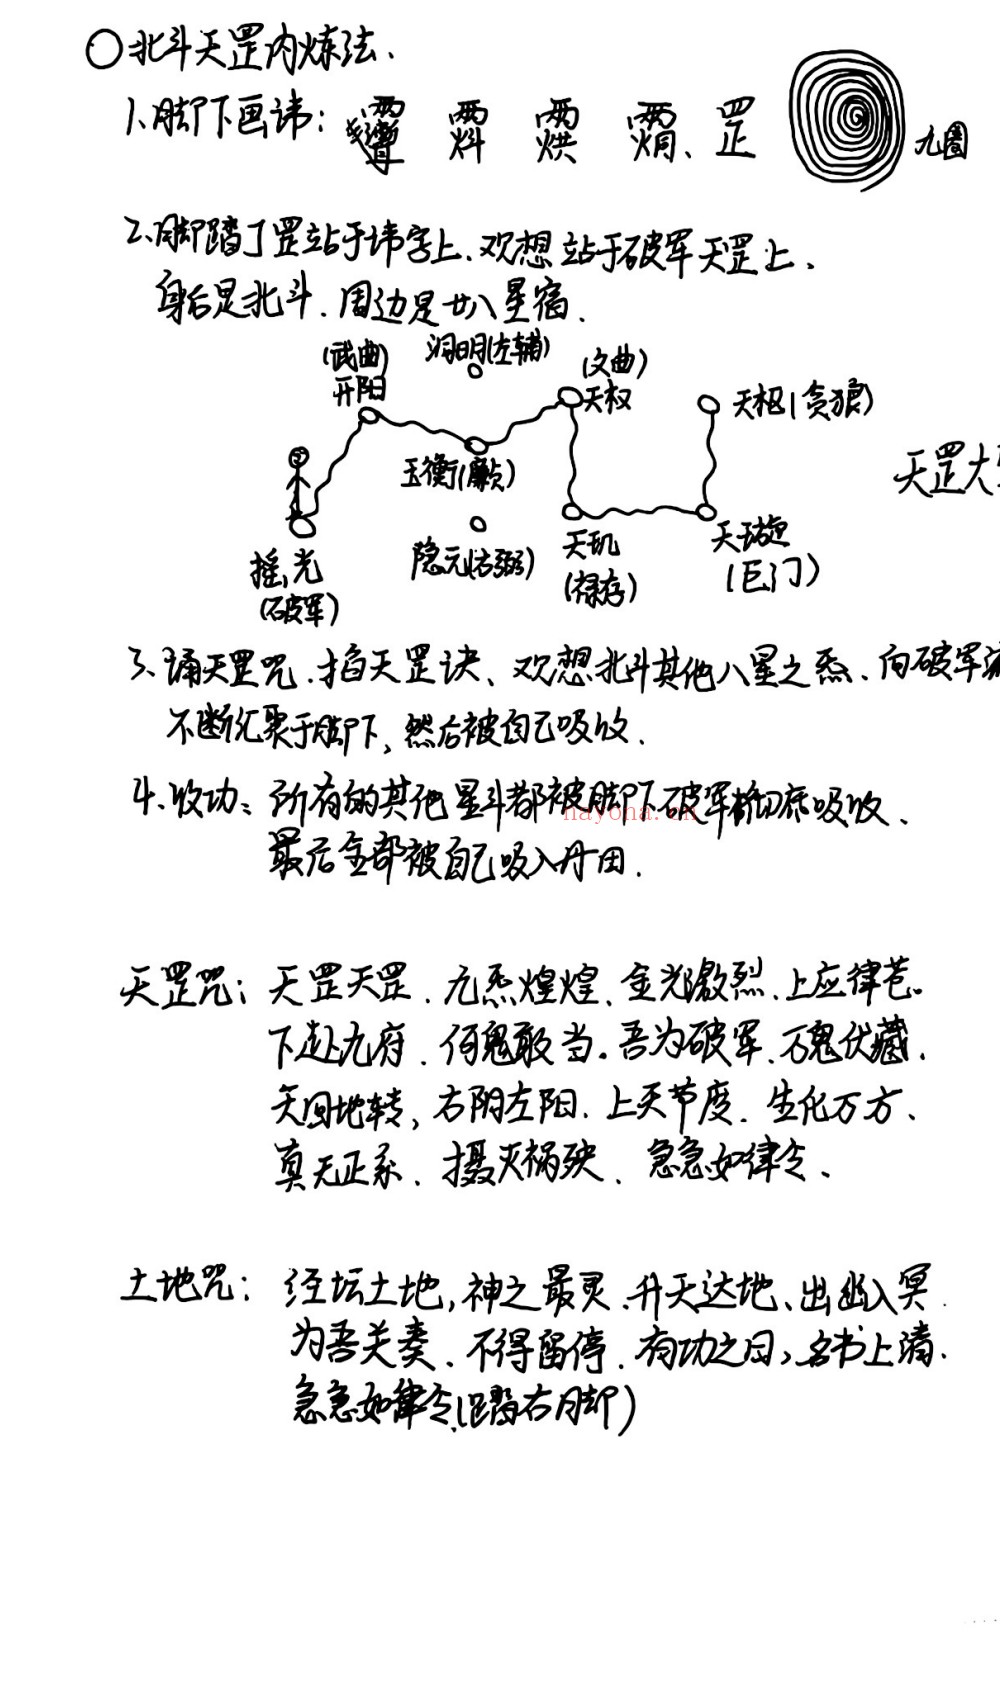 ○北斗天罡内炼法.
1、脚下画讳: 罡 九圈
2、脚踏丁罡站于讳字上、观想站于破军天罡上、
身后是北斗、周边是廿八星宿.
(武曲) 洞明(左辅) (文曲)
开阳 天权 天枢(贪狼)
玉衡(廉贞) 天罡大
摇光 隐元(右弼) 天玑 天璇
(破军) (禄存) (巨门)
3、诵天罡咒、掐天罡诀、观想北斗其他八星之炁、向破军
不断汇聚于脚下,然后被自己吸收.
4、收功: 所有的其他星斗都被脚下破军彻底吸收、
最后全部被自己吸入丹田.
nayona.cn
天罡咒: 天罡天罡、九炁煌煌、金光激烈、上应律苍。
下赴九府、何鬼敢当。吾为破军、万鬼伏藏、
天回地转,右阴左阳、上天节度、生化万方、
真元正系、摄灭祸殃、急急如律令、
土地咒: 经坛土地,神之最灵、升天达地、出幽入冥.
为吾关奏、不得留停、有功之日,名书上清.
急急如律令.(踏右脚)